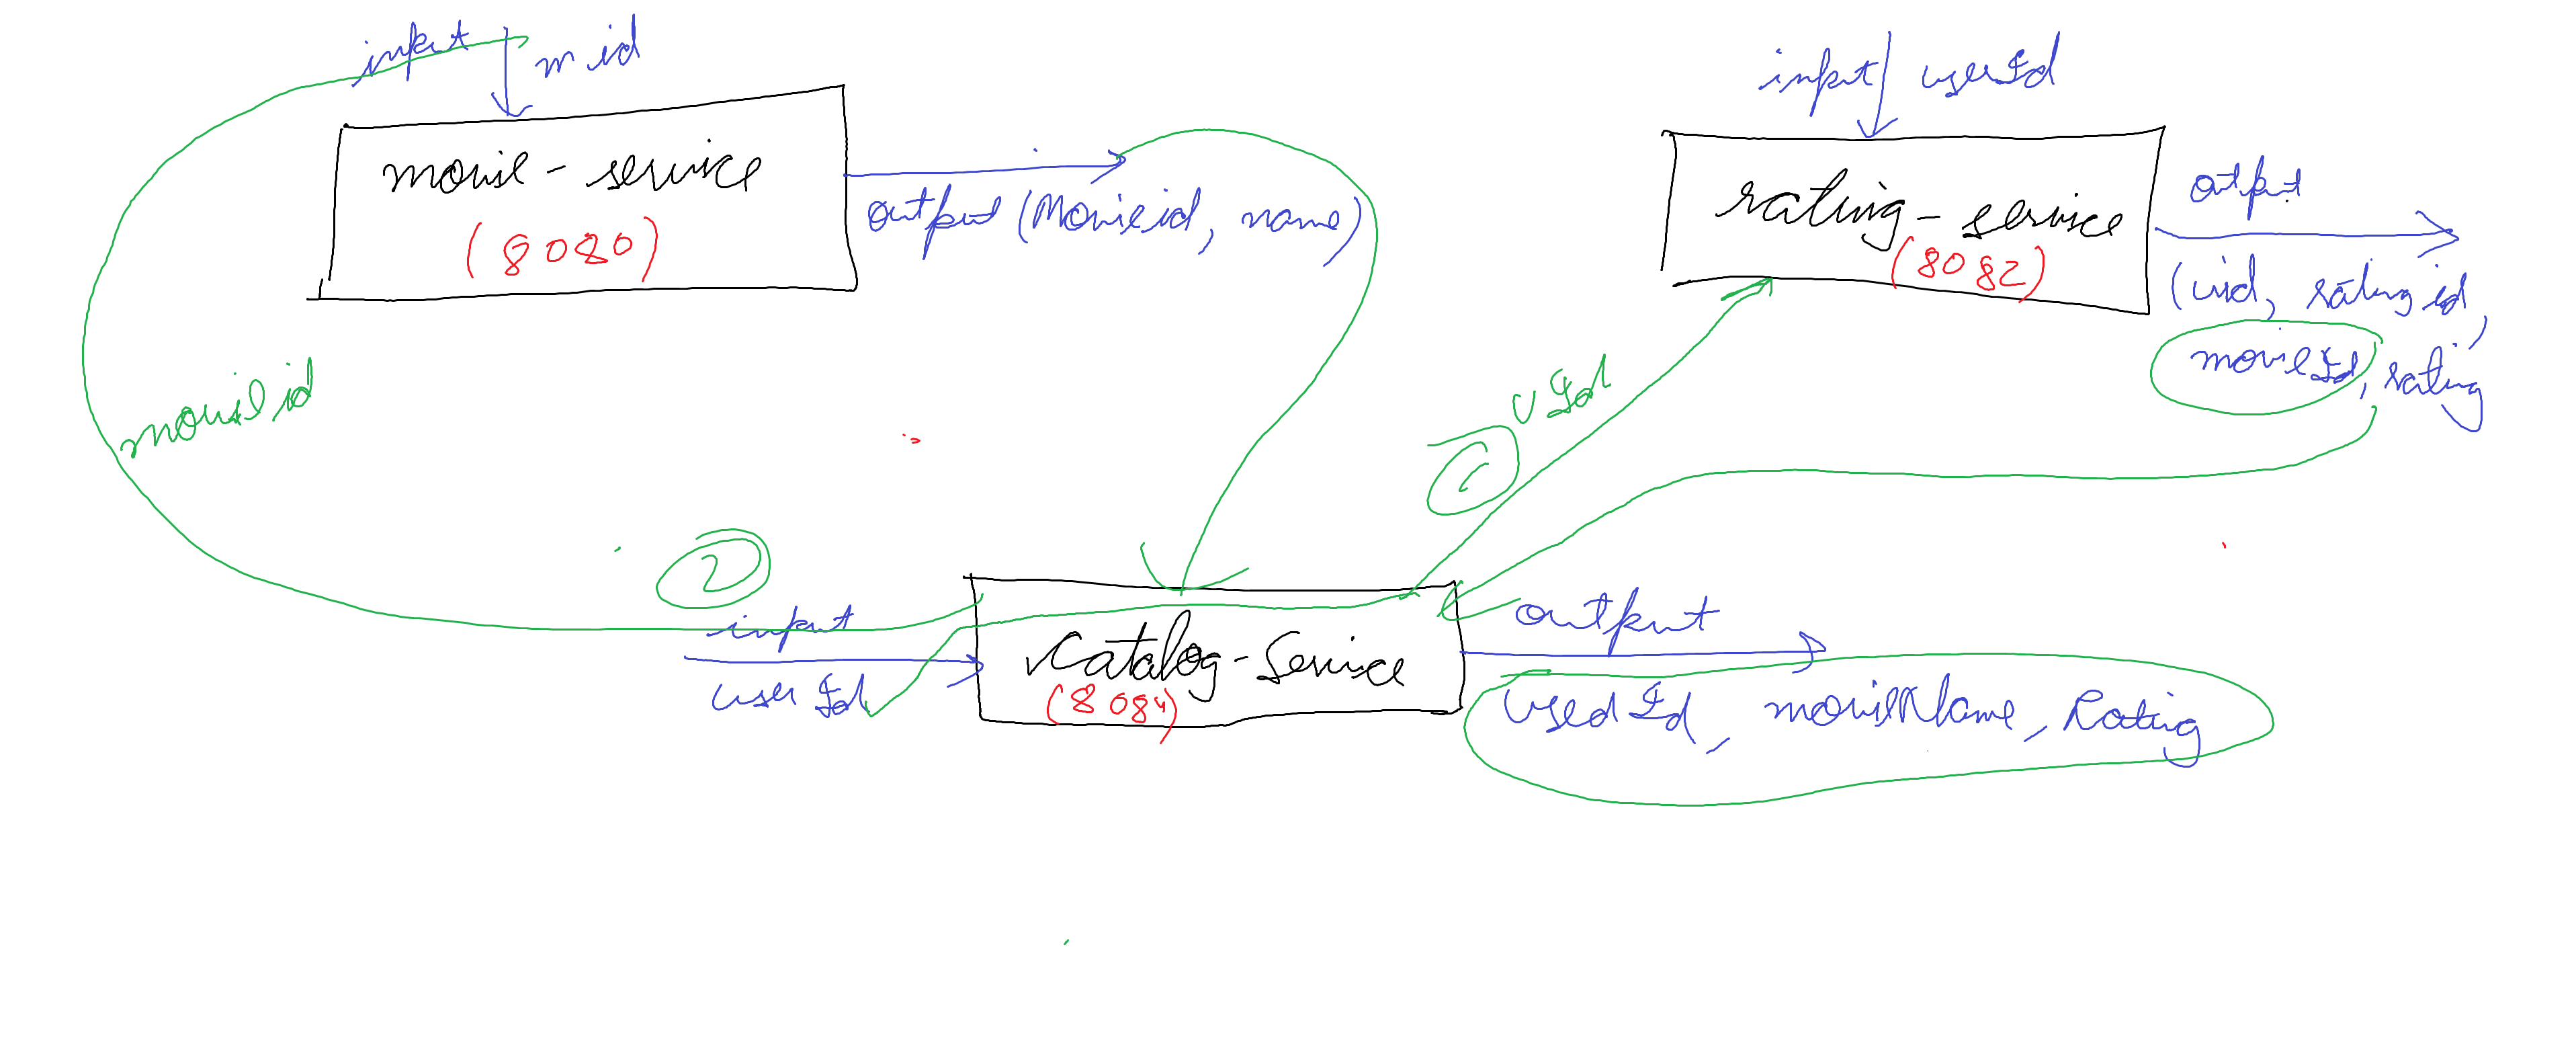 input m id
movie - service
(8080)
output (Movieid, name)
input userId
rating - service
(8082)
output
(uid, rating id,
movieId, rating
movie id
UId
2
input
user Id
Catalog - Service
(8084)
output
UsedId, movieName, Rating